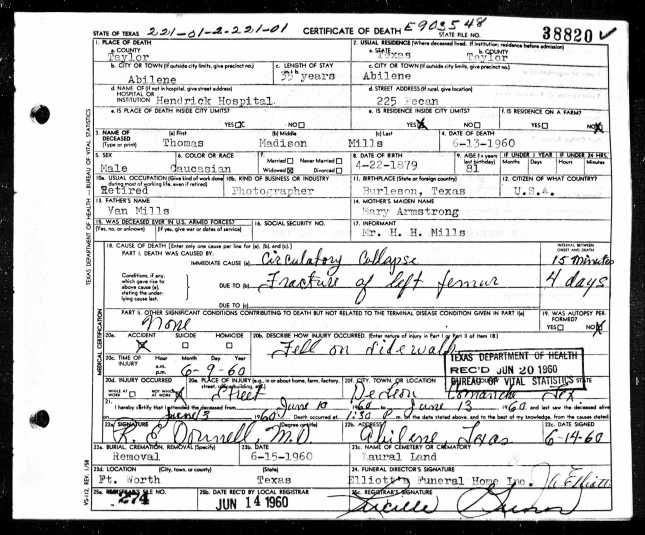 STATE OF TEXAS 221-01-2-221-01 CERTIFICATE OF DEATH E903548 STATE FILE NO. 38820
1. PLACE OF DEATH 2. USUAL RESIDENCE (Where deceased lived. If institution: residence before admission)
a. COUNTY Taylor a. STATE Texas b. COUNTY Taylor
b. CITY OR TOWN (If outside city limits, give precinct no.) Abilene c. LENGTH OF STAY 35 years c. CITY OR TOWN (If outside city limits, give precinct no.) Abilene
d. NAME OF (If not in hospital, give street address) HOSPITAL OR INSTITUTION Hendrick Hospital d. STREET ADDRESS (If rural, give location) 225 Pecan
e. IS PLACE OF DEATH INSIDE CITY LIMITS? YES X NO e. IS RESIDENCE INSIDE CITY LIMITS? YES X NO f. IS RESIDENCE ON A FARM? YES NO X
3. NAME OF DECEASED (Type or print) (a) First Thomas (b) Middle Madison (c) Last Mills 4. DATE OF DEATH 6-13-1960
5. SEX Male 6. COLOR OR RACE Caucasian 7. Married Never Married Widowed Divorced 8. DATE OF BIRTH 4-22-1879 9. AGE (In years last birthday) 81 IF UNDER 1 YEAR Months Days IF UNDER 24 HRS. Hours Minutes
10a. USUAL OCCUPATION (Give kind of work done during most of working life, even if retired) Retired 10b. KIND OF BUSINESS OR INDUSTRY Photographer 11. BIRTHPLACE (State or foreign country) Burleson, Texas 12. CITIZEN OF WHAT COUNTRY? U.S.A.
13. FATHER'S NAME Van Mills 14. MOTHER'S MAIDEN NAME Mary Armstrong
15. WAS DECEASED EVER IN U.S. ARMED FORCES? (Yes, no, or unknown) (If yes, give war or dates of service) 16. SOCIAL SECURITY NO. 17. INFORMANT Mr. H. H. Mills
18. CAUSE OF DEATH [Enter only one cause per line for (a), (b), and (c).] INTERVAL BETWEEN ONSET AND DEATH
PART I. DEATH WAS CAUSED BY:
IMMEDIATE CAUSE (a) Circulatory Collapse 15 minutes
Conditions, if any, which gave rise to above cause (a), stating the underlying cause last. DUE TO (b) Fracture of left femur 4 days
DUE TO (c)
PART II. OTHER SIGNIFICANT CONDITIONS CONTRIBUTING TO DEATH BUT NOT RELATED TO THE TERMINAL DISEASE CONDITION GIVEN IN PART I(a) 19. WAS AUTOPSY PERFORMED?
None YES NO X
20a. ACCIDENT X SUICIDE HOMICIDE 20b. DESCRIBE HOW INJURY OCCURRED. (Enter nature of injury in Part I or Part II of item 18)
Fell on sidewalk
20c. TIME OF INJURY Hour Month Day Year a.m. p.m. 6-9-60
TEXAS DEPARTMENT OF HEALTH
REC'D JUN 20 1960
BUREAU OF VITAL STATISTICS
20d. INJURY OCCURRED WHILE AT WORK NOT WHILE AT WORK X 20e. PLACE OF INJURY (e.g., in or about home, farm, factory, street, office building, etc.) Street 20f. CITY, TOWN, OR LOCATION COUNTY STATE De Leon Comanche Tex
21. I hereby certify that I attended the deceased from June 10 1960 to June 13 1960 and last saw the deceased alive
on June 13 1960. Death occurred at 1:50 m. on the date stated above, and to the best of my knowledge, from the causes stated.
22a. SIGNATURE (Degree or title) M.D. 22b. ADDRESS Abilene, Texas 22c. DATE SIGNED 6-14-60
23a. BURIAL, CREMATION, REMOVAL (Specify) Removal 23b. DATE 6-15-1960 23c. NAME OF CEMETERY OR CREMATORY Laural Land
23d. LOCATION (City, town, or county) (State) Ft. Worth Texas 24. FUNERAL DIRECTOR'S SIGNATURE Elliott's Funeral Home Inc.
25a. REGISTRAR'S FILE NO. 274 25b. DATE REC'D BY LOCAL REGISTRAR JUN 14 1960 25c. REGISTRAR'S SIGNATURE
TEXAS DEPARTMENT OF HEALTH — BUREAU OF VITAL STATISTICS
MEDICAL CERTIFICATION
VS-112, REV. 1/58